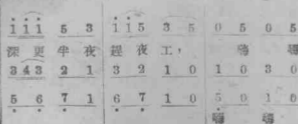 1 1 1 5 3 | 1 1 5 3 5 | 0 5 0 5
深更半夜 趕夜工， 嗨 嗨
3 4 3 2 1 | 3 2 1 0 | 1 0 3 0
5 6 7 1 | 6 7 1 0 | 5 0 1 0